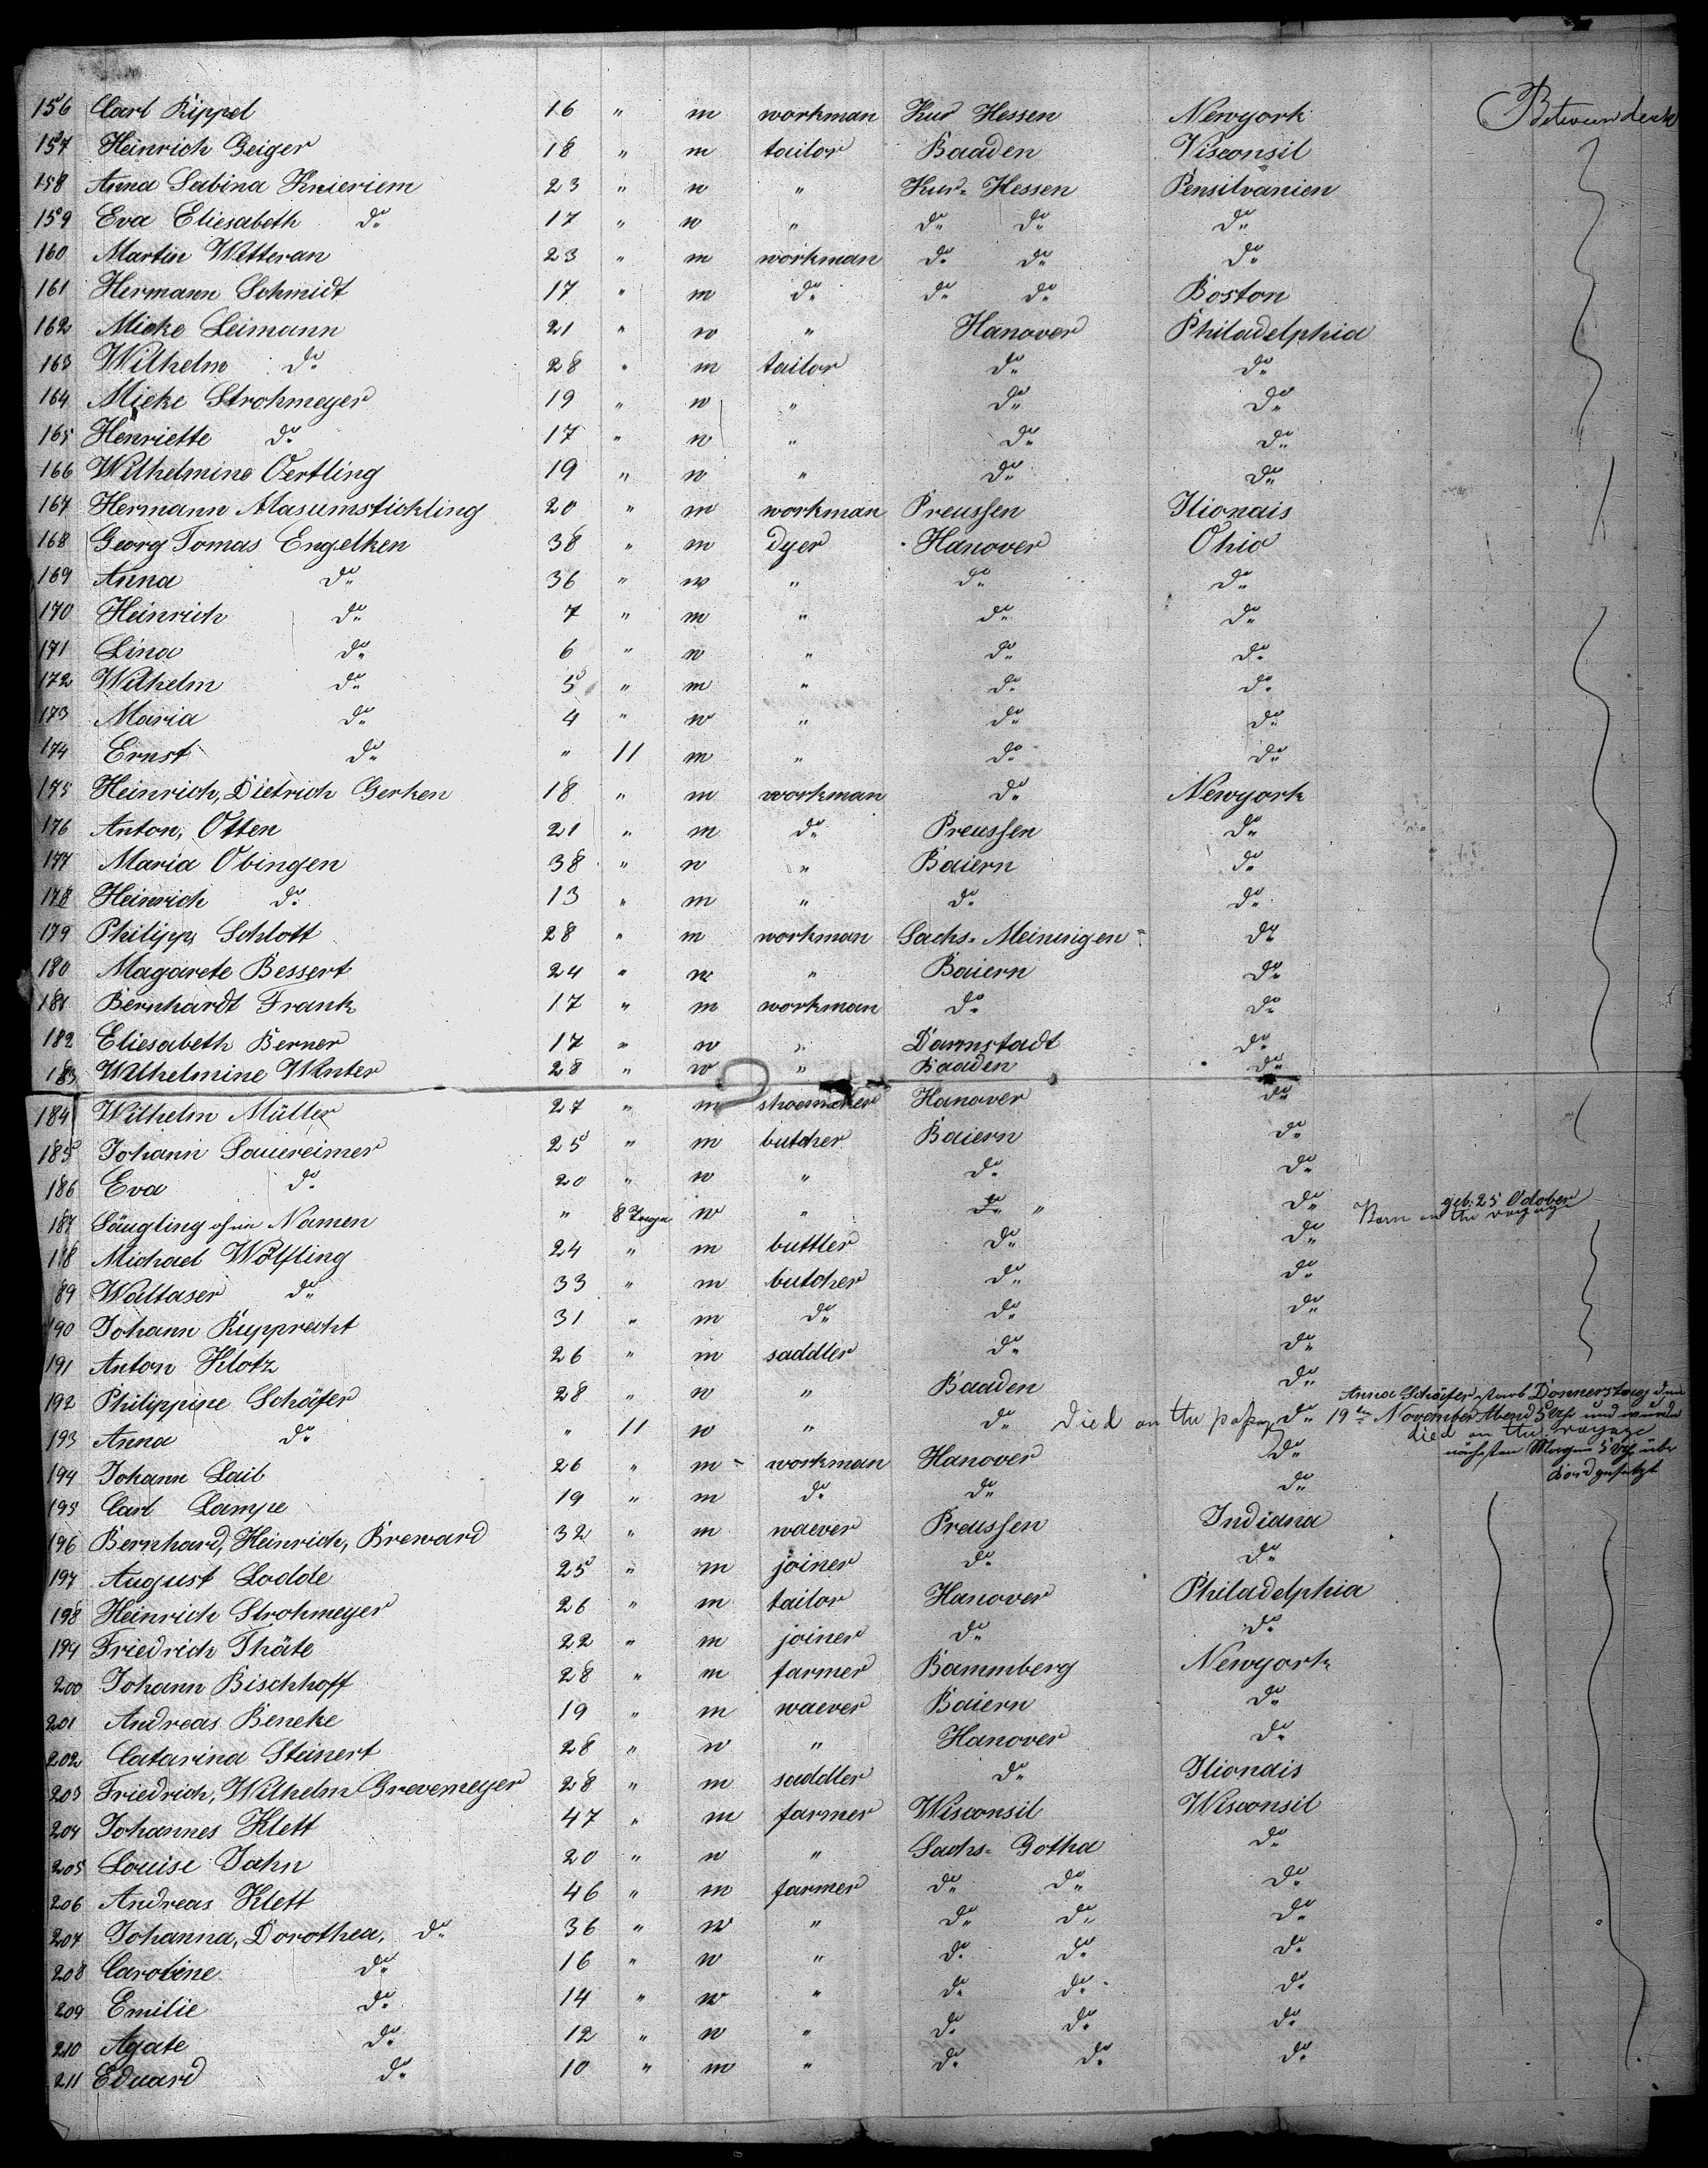 156 Carl Rippel 16 " m workman Kur Hessen Newyork Between deck
157 Heinrich Geiger 18 " m tailor Baaden Visconsil
158 Anna Sabina Knieriem 23 " w " Kur-Hessen Pensilvanien
159 Eva Eliesabeth do 17 " w " do do do
160 Martin Wetteran 23 " m workman do do do
161 Hermann Schmidt 17 " m do do do Boston
162 Mieke Leimann 21 " w " Hanover Philadelphia
163 Wilhelm do 28 " m tailor do do
164 Mieke Strohmeyer 19 " w " do do
165 Henriette do 17 " w " do do
166 Wilhelmine Oertling 19 " w " do do
167 Hermann Masumstickling 20 " m workman Preussen Ilionais
168 Georg Tomas Engelken 38 " m dyer Hanover Ohio
169 Anna do 36 " w " do do
170 Heinrich do 7 " m " do do
171 Lina do 6 " w " do do
172 Wilhelm do 5 " m " do do
173 Maria do 4 " w " do do
174 Ernst do " 11 m " do do
175 Heinrich, Dietrich Gerken 18 " m workman do Newyork
176 Anton, Otten 21 " m do Preussen do
177 Maria Obingen 38 " w " Baiern do
178 Heinrich do 13 " m " do do
179 Philipp Schlott 28 " m workman Sachs-Meiningen do
180 Magarete Bessert 24 " w " Baiern do
181 Bernhardt Frank 17 " m workman do do
182 Eliesabeth Berner 17 " w " Darmstadt do
183 Wilhelmine Winter 28 " w " Baaden do
184 Wilhelm Müller 27 " m shoemaker Hanover do
185 Johann Sauereimer 25 " m butcher Baiern do
186 Eva do 20 " w " do do
187 Säugling ohne Namen " 8 Tage w " do " do geb. 25 October
Born on the voyage
188 Michael Wölfling 24 " m buttler do do
89 Waltaser do 33 " m butcher do do
190 Johann Rupprecht 31 " m do do do
191 Anton Klotz 26 " m saddler do do
192 Philippine Schäfer 28 " w " Baaden do
Anna Schäfer starb Donnerstag den
193 Anna do " 11 w " do died on the do 19ten November Abend 5 Uhr und wurde
died on the voyage
nächsten Morgen 5 Uhr über
Bord gesetzt
194 Johann Laib 26 " m workman Hanover do
195 Carl Lampe 19 " m do do do
196 Bernhard, Heinrich, Breward 32 " m waever Preussen Indiana
197 August Lodde 25 " m joiner do do
198 Heinrich Strohmeyer 26 " m tailor Hanover Philadelphia
199 Friedrich Thäte 22 " m joiner do do
200 Johann Bischhoff 28 " m farmer Bammberg Newyork
201 Andreas Beneke 19 " m waever Baiern do
202 Catarina Steinert 28 " w " Hanover do
203 Friedrich, Wilhelm Grevemeyer 28 " m saddler do Ilionais
204 Johannes Klett 47 " m farmer Wisconsil Wisconsil
205 Louise Jahn 20 " w " Sachs-Gotha do
206 Andreas Klett 46 " m farmer do do do
207 Johanna, Dorothea, do 36 " w " do do do
208 Caroline do 16 " w " do do do
209 Emilie do 14 " w " do do do
210 Agate do 12 " w " do do do
211 Eduard do 10 " m " do do do